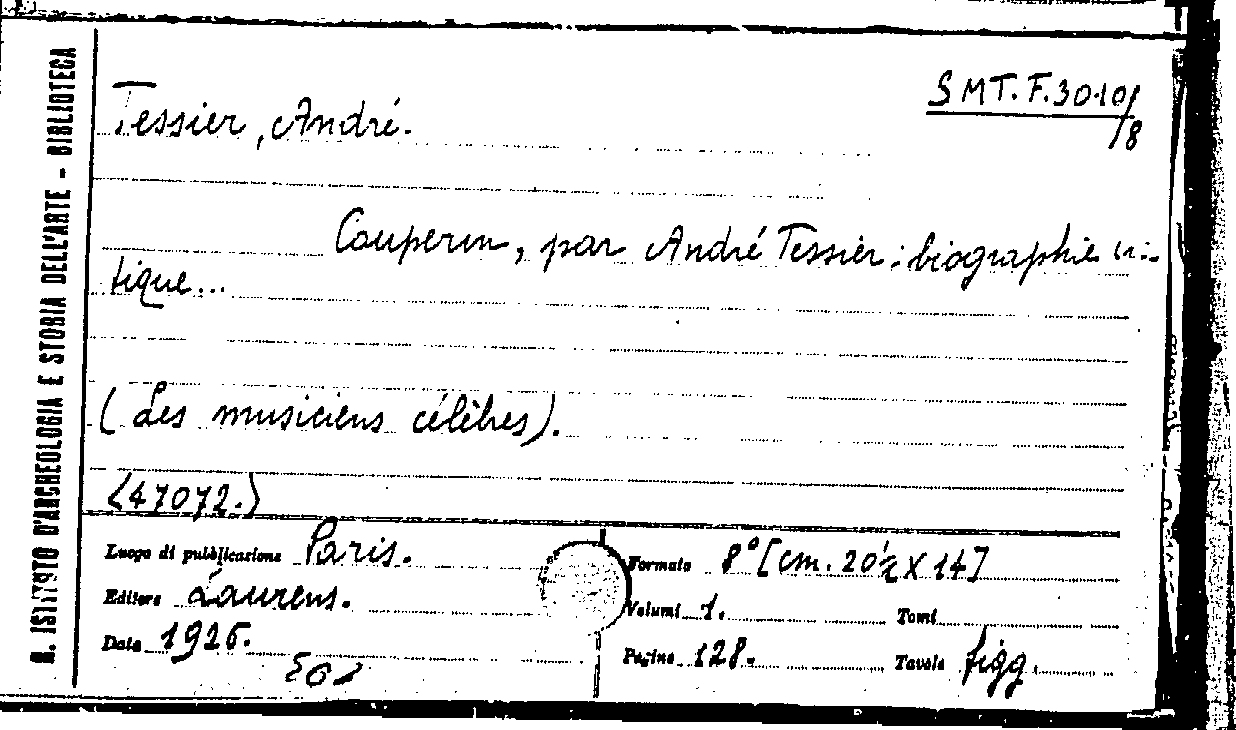 R. ISTITUTO D'ARCHEOLOGIA E STORIA DELL'ARTE - BIBLIOTECA
SMT. F. 3010/8
Tessier, André.
Couperin, par André Tessier: biographie cri-
tique...
(Les musiciens célèbres).
(47072.)
Luogo di pubblicazione Paris.
Editore Laurens.
Data 1926.
Formato 8° [cm. 20½ X 14]
Volumi 1. Tomi
Pagine 128. Tavole figg.